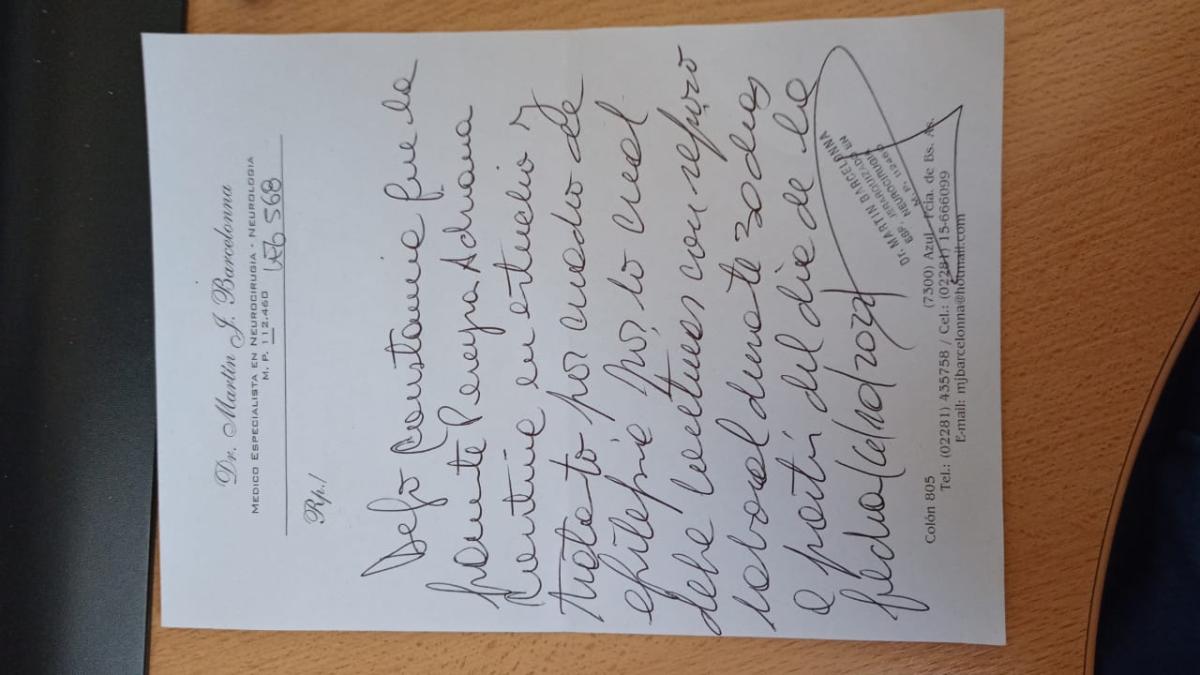 Dr. Martín J. Barcelonna
MEDICO ESPECIALISTA EN NEUROCIRUGIA - NEUROLOGIA
M. P. 112.460
568
Rp./
Dejo constancia que la
paciente Pereyra Adriana
continúa en estudio y
trata-to por cuadro de
epilepsia por lo cual
debe continuar con reposo
laboral durante 30 dias
a partir del dia de la
fecha
DR. MARTIN BARCELONNA
ESP. JERARQUIZADO EN
NEUROCIRUGIA
M. P. 112460
Colón 805
(7300) Azul - Pcia. de Bs. As.
Tel.: (02281) 435758 / Cel.: (02281) 15-666099
E-mail: mjbarcelonna@hotmail.com